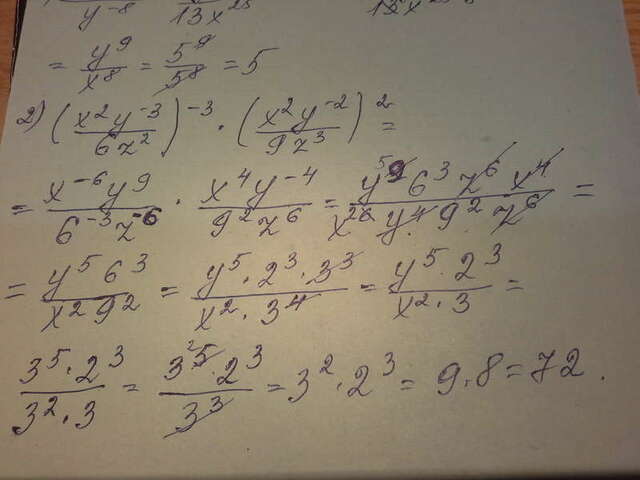 y⁻⁸ 13x²⁵
= y⁹/x⁸ = 5⁹/5⁸ = 5
2) (x²y⁻³/6z²)⁻³ · (x²y⁻²/9z³)² =
= x⁻⁶y⁹/6⁻³z⁻⁶ · x⁴y⁻⁴/9²z⁶ = y⁵⁹6³z⁶x⁴/x²⁶y⁴9²z⁶ =
= y⁵6³/x²9² = y⁵·2³·3³/x²·3⁴ = y⁵·2³/x²·3 =
3⁵·2³/3²·3 = 3²⁵·2³/3³ = 3²·2³ = 9·8 = 72.